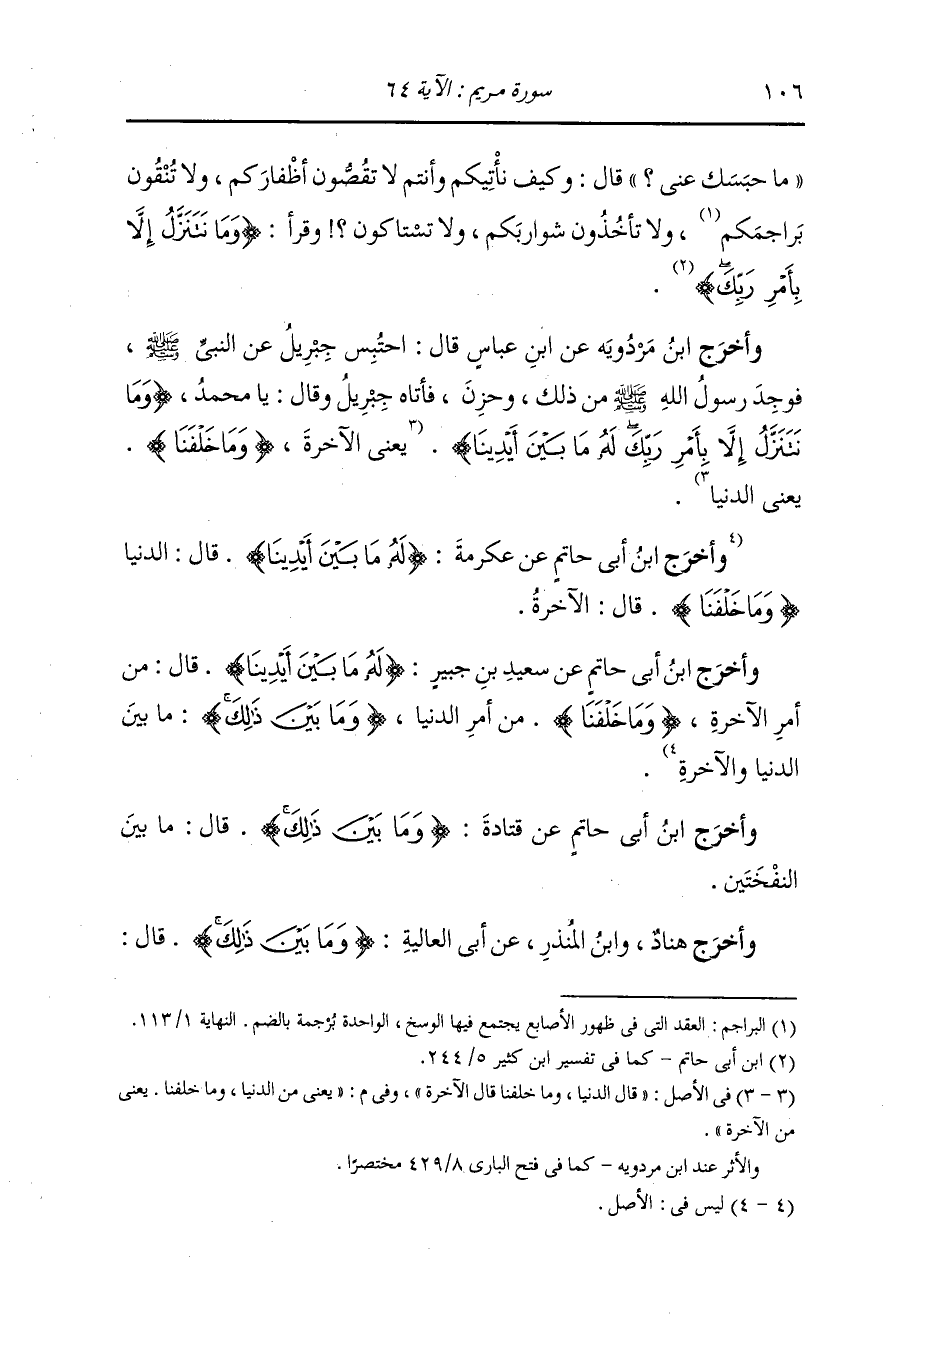 ١٠٦ سورة مريم : الآية ٦٤
« ما حبَسَك عنى ؟ » قال : وكيف نأْتِيكم وأنتم لا تقُصُّون أظْفارَكم ، ولا تُنْقُون
بَراجمَكم(١) ، ولا تأخُذُون شواربَكم ، ولا تسْتاكون ؟! وقرأ : ﴿وَمَا نَتَنَزَّلُ إِلَّا
بِأَمْرِ رَبِّكَۖ﴾(٢) .
وأخرَج ابنُ مَرْدُويَه عن ابنِ عباسٍ قال : احتُبِس جِبْرِيلُ عن النبىِّ ﷺ ،
فوجِدَ رسولُ اللهِ ﷺ من ذلك ، وحزِنَ ، فأتاه جِبْرِيلُ وقال : يا محمدُ ، ﴿وَمَا
نَتَنَزَّلُ إِلَّا بِأَمْرِ رَبِّكَۖ لَهُۥ مَا بَيْنَ أَيْدِينَا﴾ . (٣يعنى الآخرةَ ، ﴿وَمَا خَلْفَنَا﴾ .
يعنى الدنيا٣) .
(٤وأخرَج ابنُ أبى حاتمٍ عن عكرمةَ : ﴿لَهُۥ مَا بَيْنَ أَيْدِينَا﴾ . قال : الدنيا
﴿وَمَا خَلْفَنَا﴾ . قال : الآخرةُ .
وأخرَج ابنُ أبى حاتمٍ عن سعيدِ بنِ جبيرٍ : ﴿لَهُۥ مَا بَيْنَ أَيْدِينَا﴾ . قال : من
أمرِ الآخرةِ ، ﴿وَمَا خَلْفَنَا﴾ . من أمرِ الدنيا ، ﴿وَمَا بَيْنَ ذَٰلِكَۚ﴾ : ما بينَ
الدنيا والآخرةِ٤) .
وأخرَج ابنُ أبى حاتمٍ عن قتادةَ : ﴿وَمَا بَيْنَ ذَٰلِكَۚ﴾ . قال : ما بينَ
النفْخَتَين .
وأخرَج هنادٌ ، وابنُ المُنذرِ ، عن أبى العاليةِ : ﴿وَمَا بَيْنَ ذَٰلِكَۚ﴾ . قال :
(١) البراجم : العقد التى فى ظهور الأصابع يجتمع فيها الوسخ ، الواحدة بُرْجمة بالضم . النهاية ١/ ١١٣.
(٢) ابن أبى حاتم - كما فى تفسير ابن كثير ٥/ ٢٤٤.
(٣ - ٣) فى الأصل : « قال الدنيا ، وما خلفنا قال الآخرة » ، وفى م : « يعنى من الدنيا ، وما خلفنا . يعنى
من الآخرة » .
والأثر عند ابن مردويه - كما فى فتح البارى ٨/ ٤٢٩ مختصرًا .
(٤ - ٤) ليس فى : الأصل .